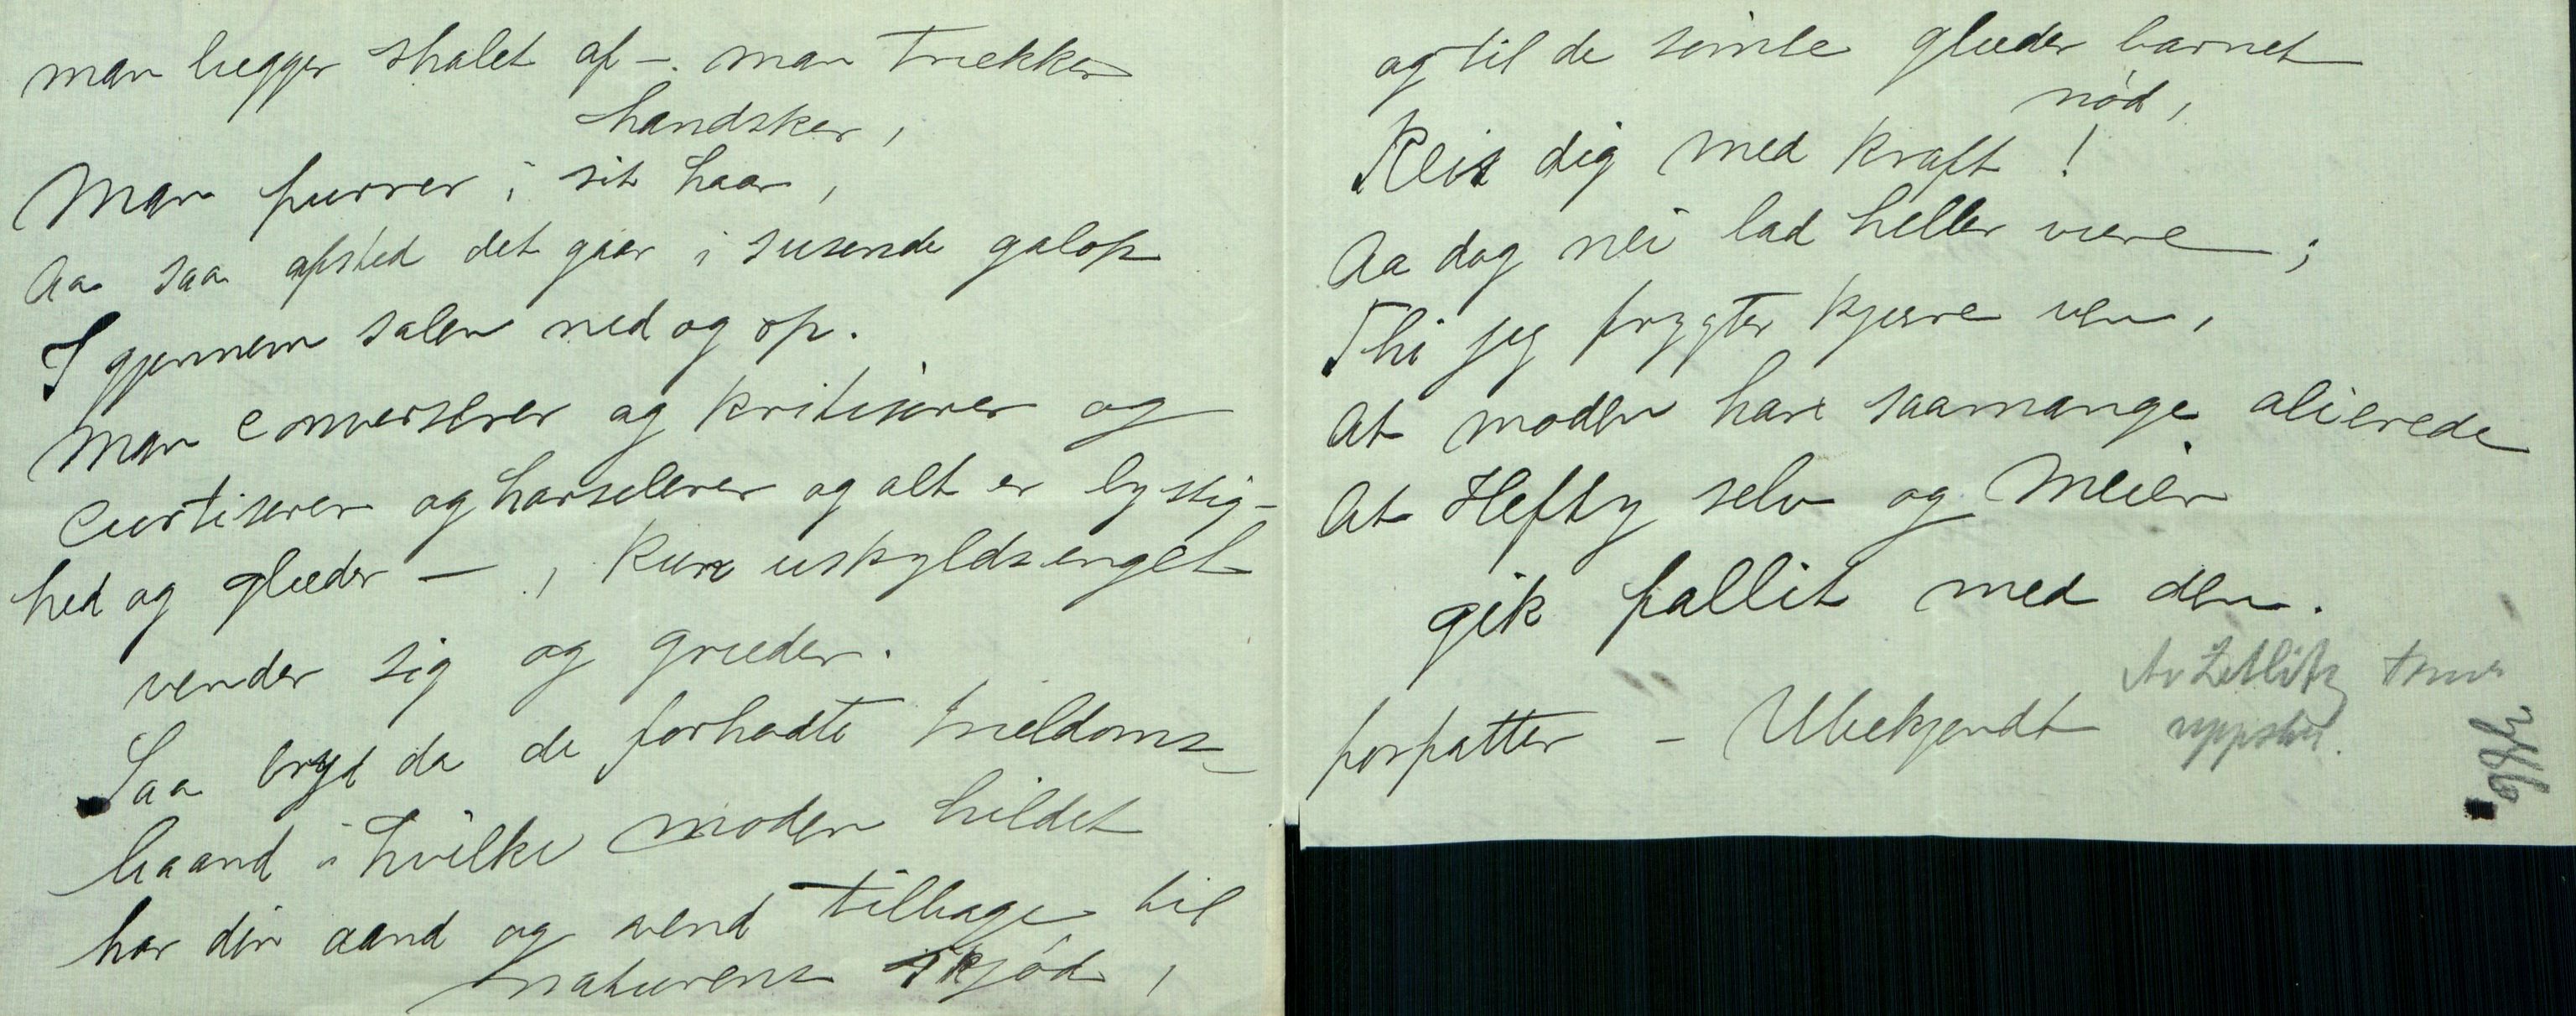 man lægger shalet af -. man trækker
handsker,
Man purrer i sit haar,
Aa saa afsted det gaar i susende galop
I gjennem salen ned og op.
Man converserer og kritiserer og
Curtiserer og harselerer og alt er lystig-
hed og glæder - , kun uskyldsengel
vender sig og græder.
Saa bryd da de forhadte trældoms-
baand i hvilke moden hildet
har din aand og vend tilbage til
naturens skjød,
og til de simle glæder barnet
nød,
Reis dig med kraft!
Aa dog nei lad heller være;
Thi jeg frygter kjære ven,
At moden har saamange alierede
At Hefty selv og Meier
gik fallit med den.
forfatter - Ubekjendt
Av Zetlitz